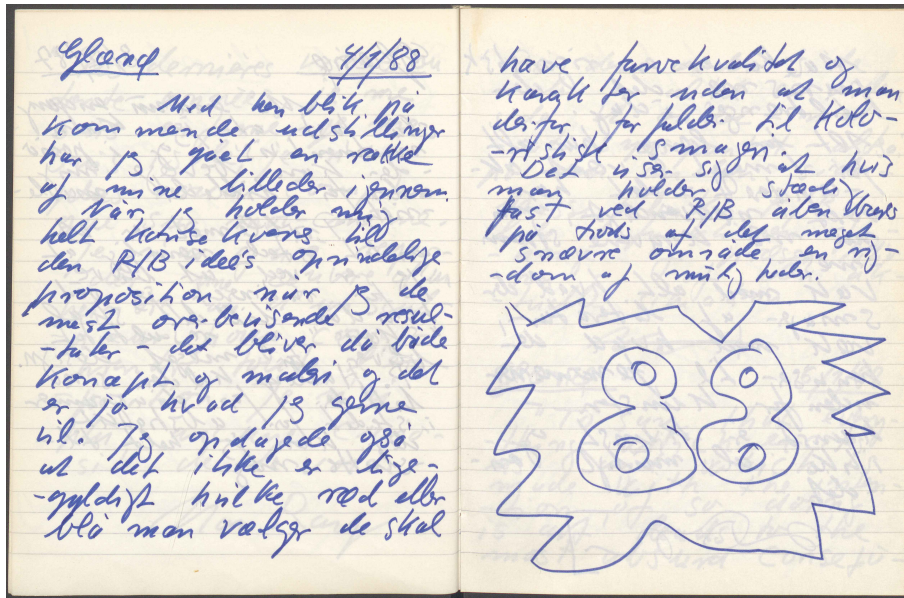 Glænø 4/1/88
Med henblik på
kommende udstillinger
har jeg gået en række
af mine billeder igennem.
Når jeg holder mig
helt konsekvens til
den R/B idee's oprindelige
proposition når jeg de
mest overbevisende resul-
-tater - det bliver da både
koncept og maleri og det
er jo hvad jeg gerne
vil. Jeg opdagede også
at det ikke er lige-
-gyldigt hvilke rød eller
blå man vælger de skal
have farvekvalitet og
karakter uden at man
derfor forfalder til kolo-
-ristisk smageri.
Det viser sig at hvis
man holder stædig
fast ved R/B åbenbares
på trods af det meget
snævre område en rig-
-dom af muligheder.
88